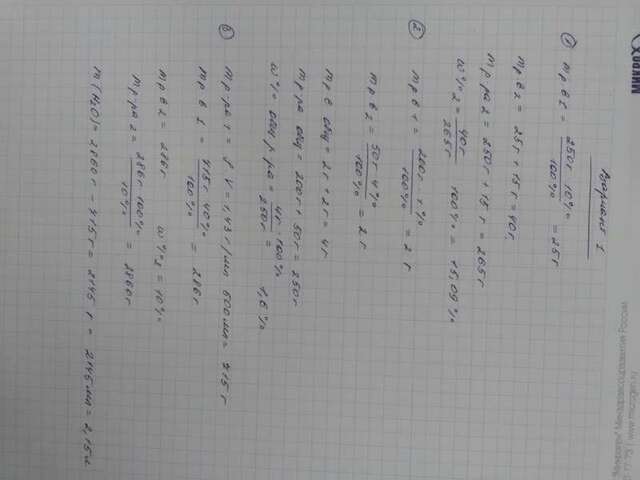 Вариант 1
① m р в 1 = 250г · 10% / 100% = 25г
m р в 2 = 25г + 15г = 40г
m р ра 2 = 250г + 15г = 265г
w% 2 = 40г / 265г · 100% = 15,09%
② m р в 1 = 200г · 1% / 100% = 2г
m р в 2 = 50г · 4% / 100% = 2г
m р в общ = 2г + 2г = 4г
m р ра общ = 200г + 50г = 250г
w% общ р ра = 4г · 100% / 250г = 1,6%
③ m р ра 1 = ρ · V = 1,43г/мл · 500мл = 715г
m р в 1 = 715г · 40% / 100% = 286г
m р в 2 = 286г w% 2 = 10%
m р ра 2 = 286г · 100% / 10% = 2860г
m (H₂O) = 2860г - 715г = 2145г = 2145мл = 2,15л
Минздравсоцразвития России
www.microgen.ru